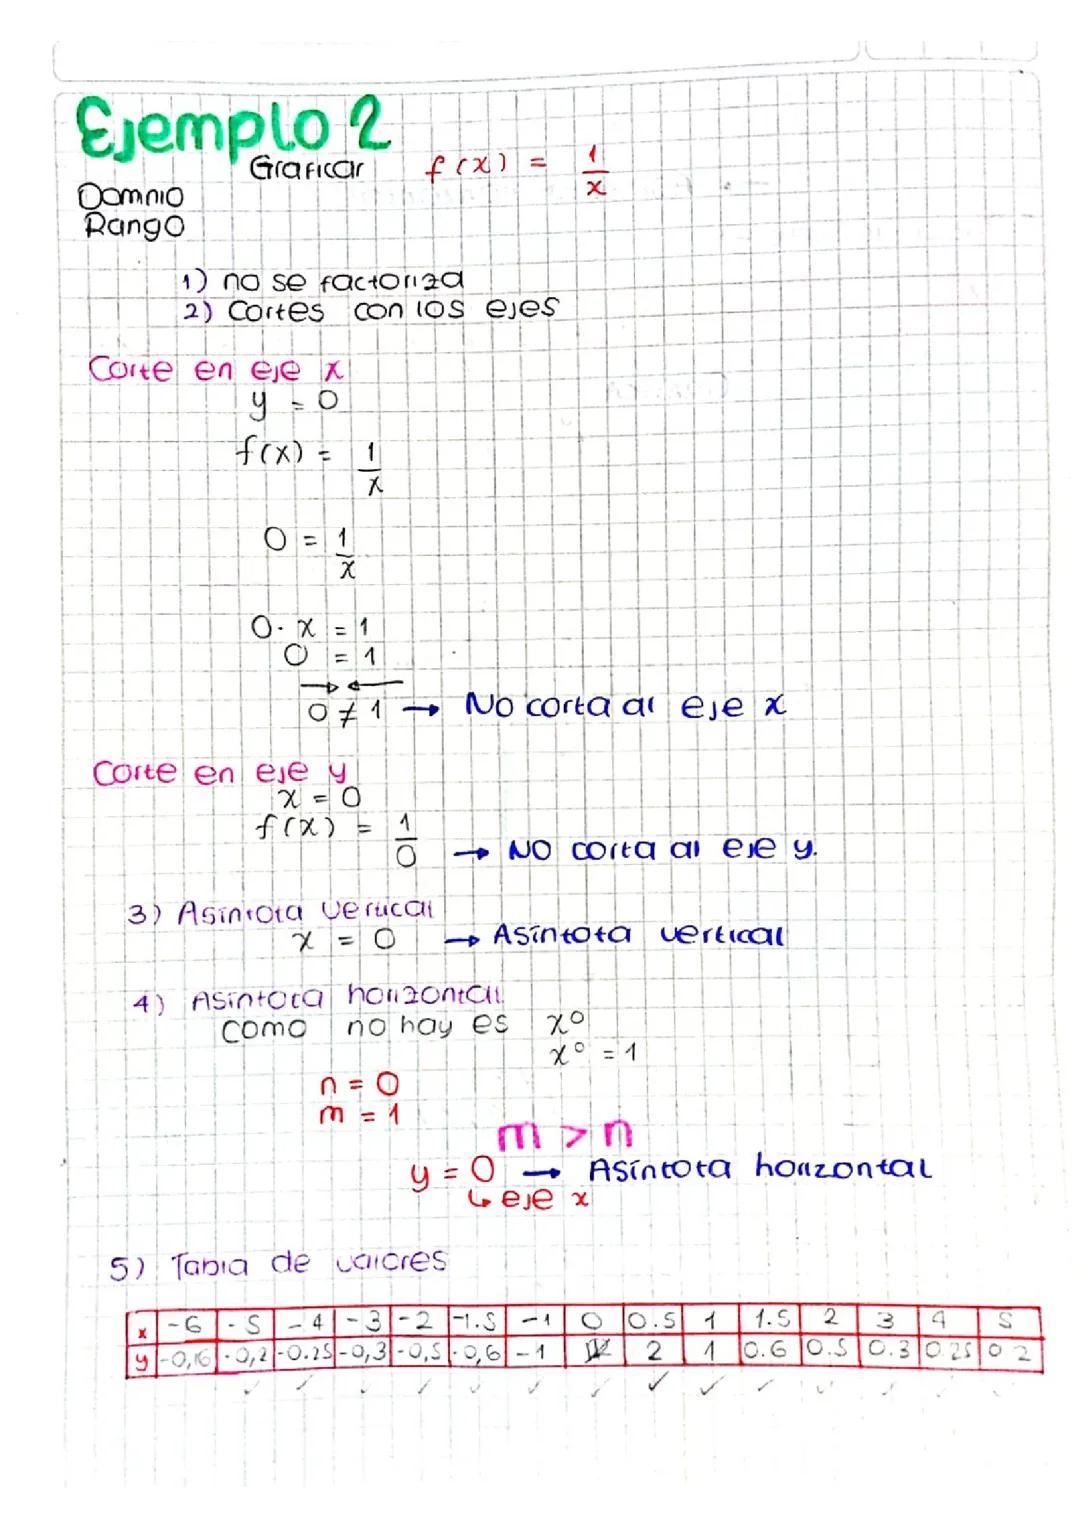 Ejemplo 2
Graficar f(x) = 1/x
Domnio
Rango
1) no se factoriza
2) Cortes con los ejes
Corte en eje x
y = 0
f(x) = 1/x
0 = 1/x
0 · x = 1
0 = 1
0 ≠ 1 → No corta al eje x
Corte en eje y
x = 0
f(x) = 1/0 → No corta al eje y.
3) Asíntota vertical
x = 0 → Asíntota vertical
4) Asíntota horizontal
como no hay es x⁰
x⁰ = 1
n = 0
m = 1
m > n
y = 0 → Asíntota horizontal
↳ eje x
5) Tabla de valores
x -6 -5 -4 -3 -2 -1.5 -1 0 0.5 1 1.5 2 3 4 5
y -0,16 -0,2 -0.25 -0,3 -0,5 -0,6 -1 2 1 0.6 0.5 0.3 0.25 0.2